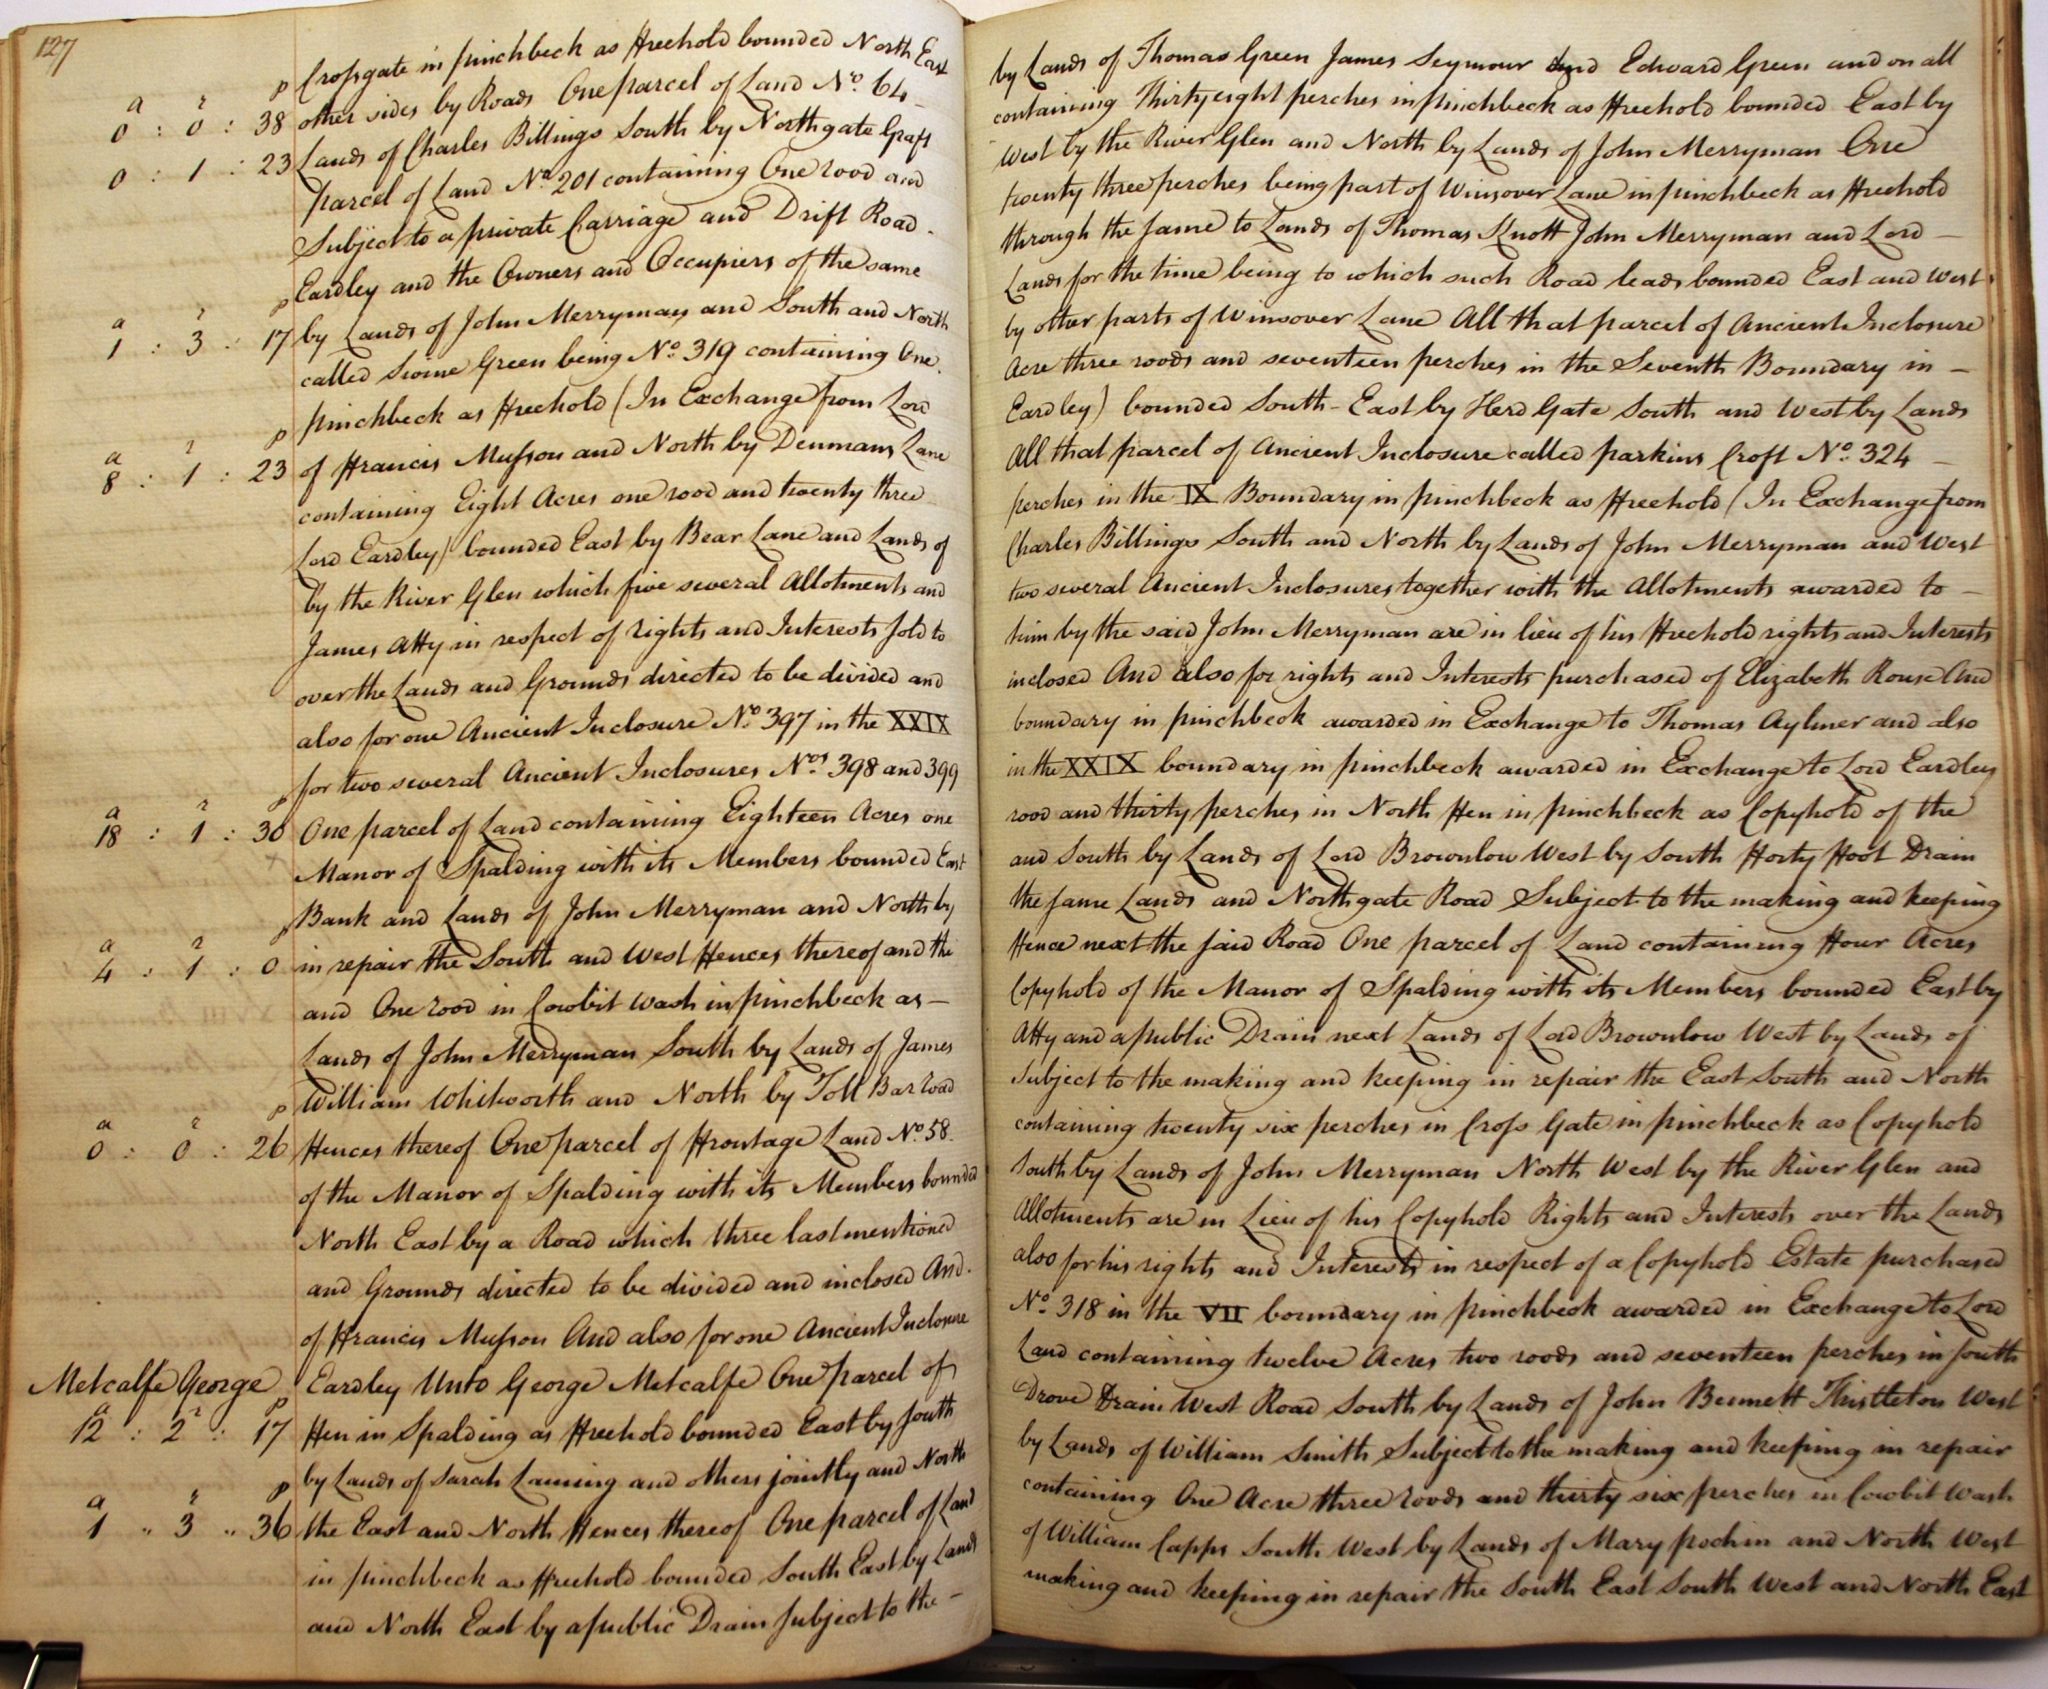 127
Crossgate in Pinchbeck as Freehold bounded North East by Lands of Thomas Green James Seymour and Edward Green and on all
a r p
0 : 0 : 38 other sides by Roads One parcel of Land No. 64 – containing Thirty eight perches in Pinchbeck as Freehold bounded East by
0 : 1 : 23 Lands of Charles Billings South by Northgate Graft West by the River Glen and North by Lands of John Merryman One
parcel of Land No. 201 containing One rood and twenty three perches being part of Winsover Lane in Pinchbeck as Freehold
Subject to a private Carriage and Drift Road through the same to Lands of Thomas Knott John Merryman and Lord –
Eardley and the Owners and Occupiers of the same Lands for the time being to which such Road leads bounded East and West
a r p
1 : 3 : 17 by Lands of John Merryman and South and North by other parts of Winsover Lane All that parcel of Ancient Inclosure
called Swine Green being No. 319 containing One Acre three roods and seventeen perches in the Seventh Boundary in –
Pinchbeck as Freehold (In Exchange from Lord Eardley) bounded South-East by Herd Gate South and West by Lands
a r p
8 : 1 : 23 of Francis Musson and North by Denmans Lane All that parcel of Ancient Inclosure called Parkins Croft No. 324 –
containing Eight Acres one rood and twenty three perches in the IX Boundary in Pinchbeck as Freehold (In Exchange from
Lord Eardley) bounded East by Bear Lane and Lands of Charles Billings South and North by Lands of John Merryman and West
by the River Glen which five several Allotments and two several Ancient Inclosures together with the Allotments awarded to –
James Atty in respect of rights and Interests sold to him by the said John Merryman are in lieu of his Freehold rights and Interests
over the Lands and Grounds directed to be divided and inclosed And also for rights and Interests purchased of Elizabeth Rouse And
also for one Ancient Inclosure No. 397 in the XXIX boundary in Pinchbeck awarded in Exchange to Thomas Aylmer and also
for two several Ancient Inclosures Nos. 398 and 399 in the XXIX boundary in Pinchbeck awarded in Exchange to Lord Eardley
a r p
18 : 1 : 30 One parcel of Land containing Eighteen Acres one rood and thirty perches in North Fen in Pinchbeck as Copyhold of the
Manor of Spalding with its Members bounded East and South by Lands of Lord Brownlow West by South Forty Foot Drain
Bank and Lands of John Merryman and North by the same Lands and Northgate Road Subject to the making and keeping
a r p
4 : 1 : 0 in repair the South and West Fences thereof and the Fence next the said Road One parcel of Land containing Four Acres
and One rood in Cowbit Wash in Pinchbeck as – Copyhold of the Manor of Spalding with its Members bounded East by
Lands of John Merryman South by Lands of James Atty and a public Drain next Lands of Lord Brownlow West by Lands of
William Whitworth and North by Toll Bar road Subject to the making and keeping in repair the East South and North
a r p
0 : 0 : 26 Fences thereof One parcel of Frontage Land No. 58 containing twenty six perches in Cross Gate in Pinchbeck as Copyhold
of the Manor of Spalding with its Members bounded South by Lands of John Merryman North West by the River Glen and
North East by a Road which three last mentioned Allotments are in Lieu of his Copyhold Rights and Interests over the Lands
and Grounds directed to be divided and inclosed And also for his rights and Interests in respect of a Copyhold Estate purchased
of Francis Musson And also for one Ancient Inclosure No. 318 in the VII boundary in Pinchbeck awarded in Exchange to Lord
Metcalfe George Eardley Unto George Metcalfe One parcel of Land containing twelve Acres two roods and seventeen perches in South
a r p
12 : 2 : 17 Fen in Spalding as Freehold bounded East by South Drove Drain West Road South by Lands of John Bennett Thistleton West
by Lands of Sarah Laming and others jointly and North by Lands of William Smith Subject to the making and keeping in repair
a r p
1 " 3 " 36 the East and North Fences thereof One parcel of Land containing One Acre three roods and thirty six perches in Cowbit Wash
in Pinchbeck as Freehold bounded South East by Lands of William Capps South West by Lands of Mary Pochin and North West
and North East by a public Drain subject to the – making and keeping in repair the South East South West and North East